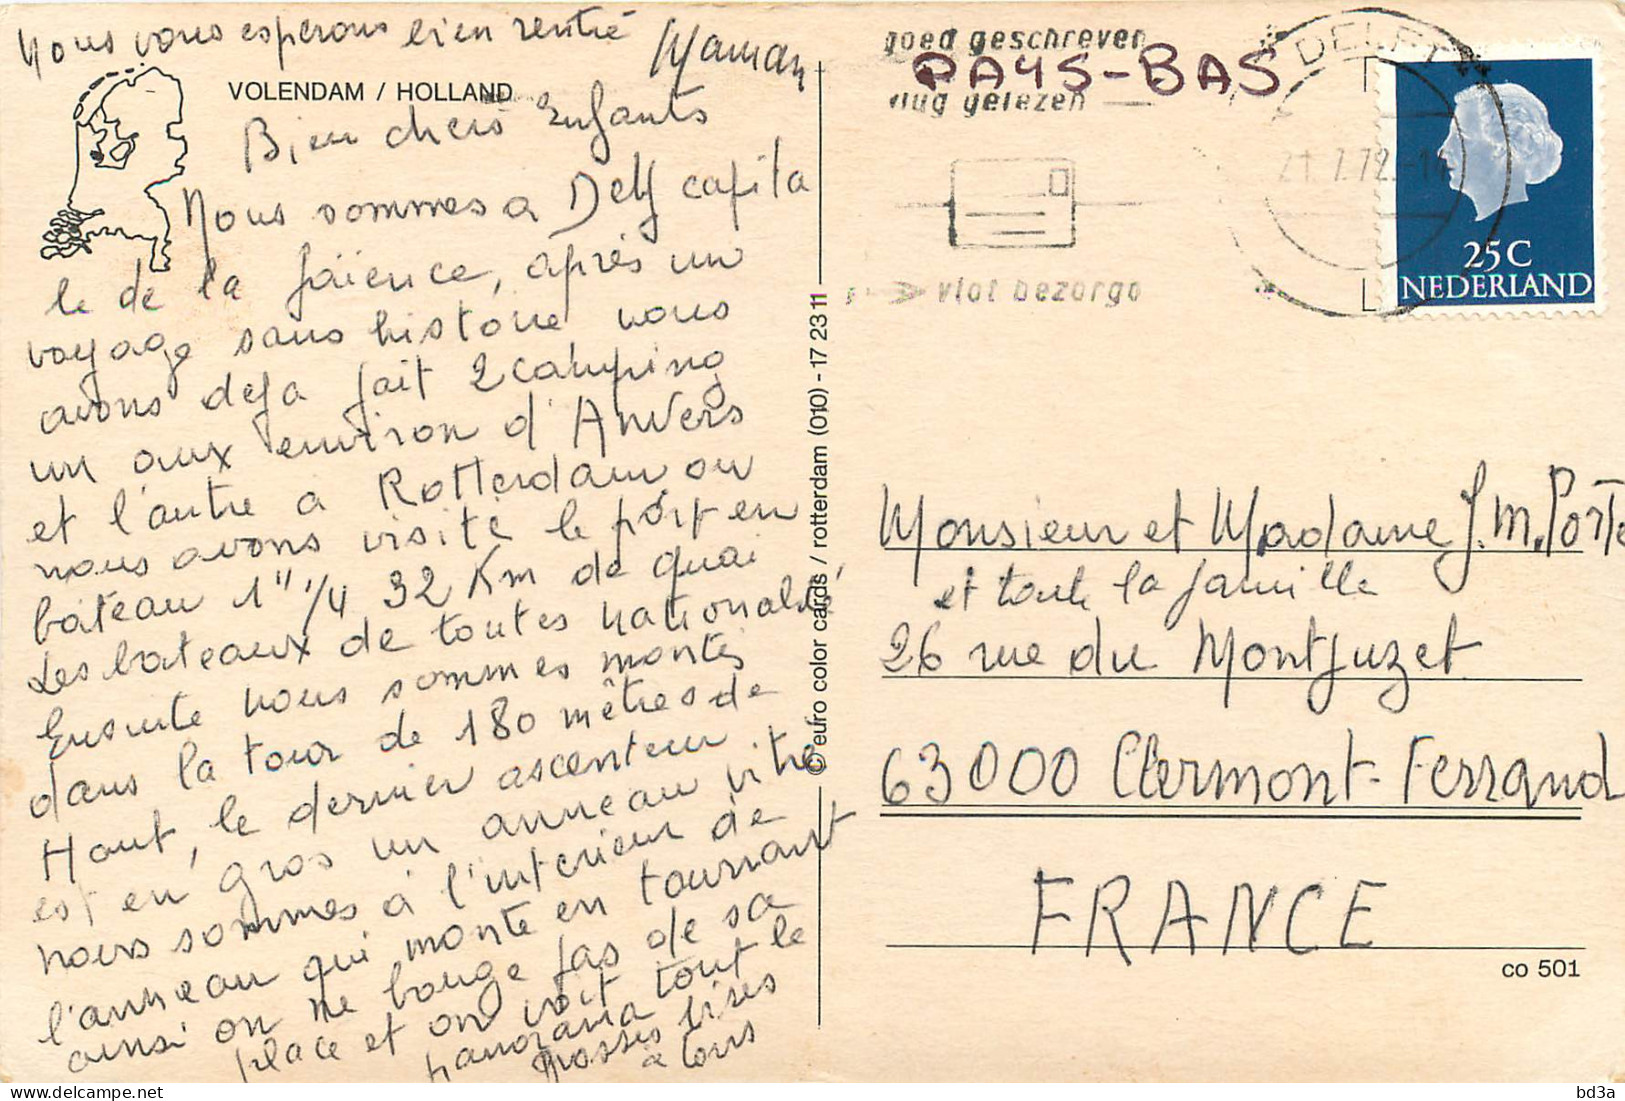 Nous vous esperons bien rentré
Maman
VOLENDAM / HOLLAND
Bien chers Enfants
Nous sommes a Delf capita
le de la faïence, après un
voyage sans histoire nous
avons deja fait 2 camping
un aux environ d'Anvers
et l'autre a Rotterdam ou
nous avons visité le port en
bateau 1" 1/4 32 Km de quai
Les bateaux de toutes nationalité
Ensuite nous sommes montés
dans la tour de 180 mètres de
Haut, le dernier ascenteur
est en gros un anneau vitré
nous sommes à l'interieur de
l'anneau qui monte en tournant
ainsi on ne bouge pas de sa
place et on voit tout le
panorama
Grosses bises
a tous
© euro color cards / rotterdam (010) - 17 23 11
goed geschreven
vlug gelezen
vlot bezorgd
PAYS-BAS
DELFT
21.7.72.-14
25C
NEDERLAND
Monsieur et Madame J.M. Porte
et toute la famille
26 rue du Montjuzet
63000 Clermont-Ferrand
FRANCE
co 501
bd3a